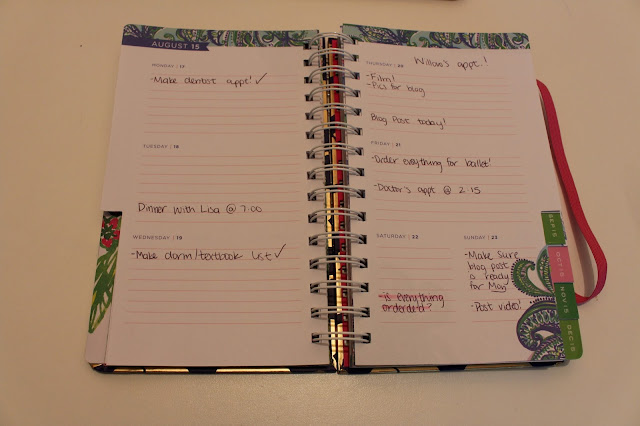 AUGUST 15
MONDAY | 17
-Make dentist appt! ✓
TUESDAY | 18
Dinner with Lisa @ 7:00
WEDNESDAY | 19
-Make dorm/textbook list ✓
THURSDAY | 20
Willow's appt.!
-Film!
-Pics for blog
Blog Post today!
FRIDAY | 21
-Order everything for ballet!
-Doctor's appt @ 2:15
SATURDAY | 22
-is everything
ordered?
SUNDAY | 23
-Make Sure
blog post
is ready
for Mon
-Post video!
SEP15
OCT15
NOV15
DEC15